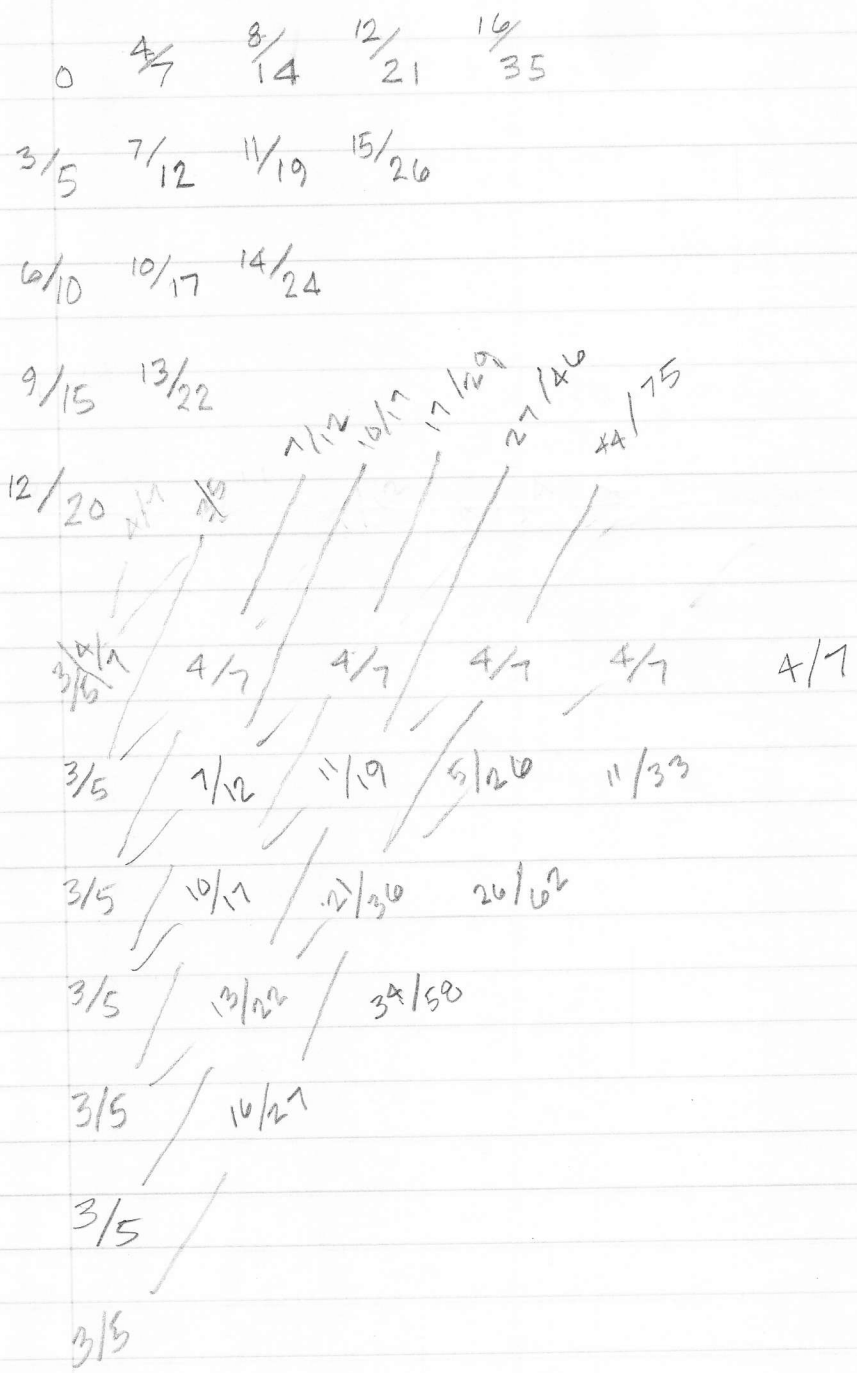 0 4/7 8/14 12/21 16/35
3/5 7/12 11/19 15/26
6/10 10/17 14/24
9/15 13/22
7/12 10/17 17/29 27/46 44/75
12/20 4/7 3/5
3/5 4/7 4/7 4/7 4/7 4/7 4/7
3/5 7/12 11/19 5/26 11/33
3/5 10/17 21/36 26/62
3/5 13/22 34/58
3/5 16/27
3/5
3/5